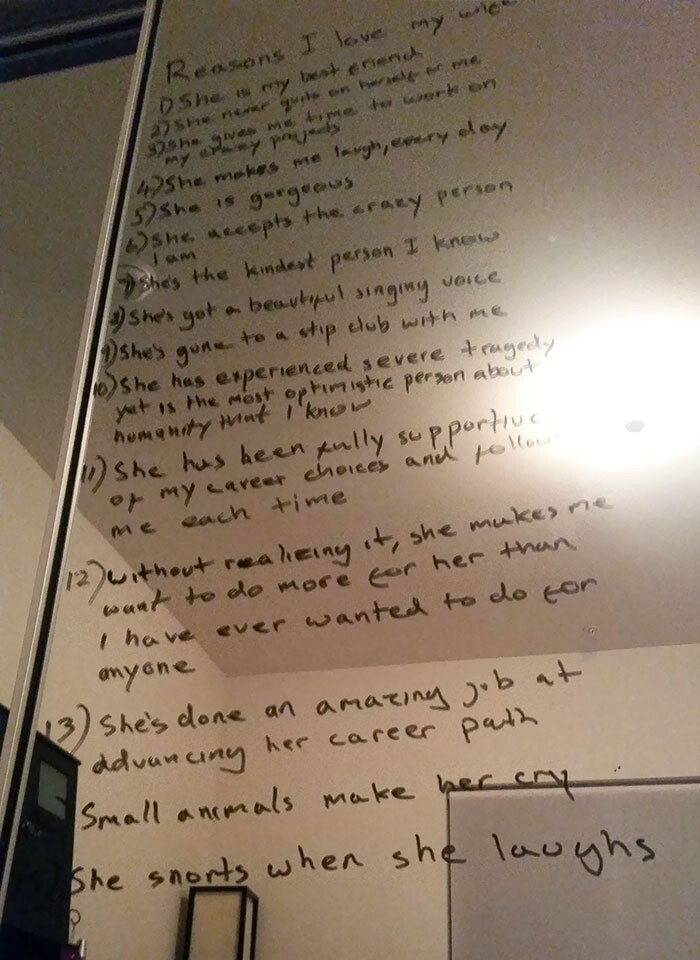 Reasons I love my wife
1) She is my best friend
2) She never quits on herself or me
3) She gives me time to work on
my crazy projects
4) She makes me laugh, every day
5) She is gorgeous
6) She accepts the crazy person
I am
7) She's the kindest person I know
8) She's got a beautiful singing voice
9) She's gone to a stip club with me
10) She has experienced severe tragedy
yet is the most optimistic person about
humanity that I know
11) She has been fully supportive
of my career choices and
me each time
12) without realizing it, she makes me
want to do more for her than
I have ever wanted to do for
anyone
13) She's done an amazing job at
advancing her career path
Small animals make her cry
15) She snorts when she laughs